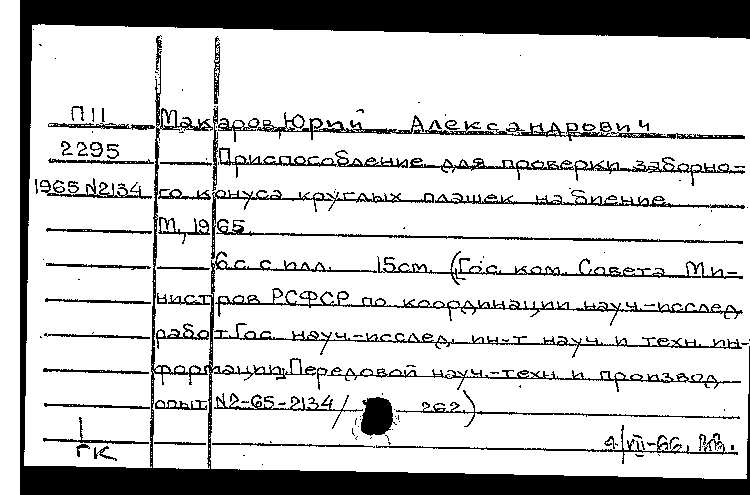 П11 Макаров, Юрий Александрович
2295 Приспособление для проверки заборно-
1965 N2134 го конуса круглых плашек на биение.
М., 1965.
6с. с илл. 15см. (Гос. ком. Совета Ми-
нистров РСФСР по координации науч.-исслед
работ. Гос. науч.-исслед. ин-т науч. и техн. ин-
формации. Передовой науч.-техн. и производ-
опыт N2-65-2134/ 262.)
ГК 4/VII-66,